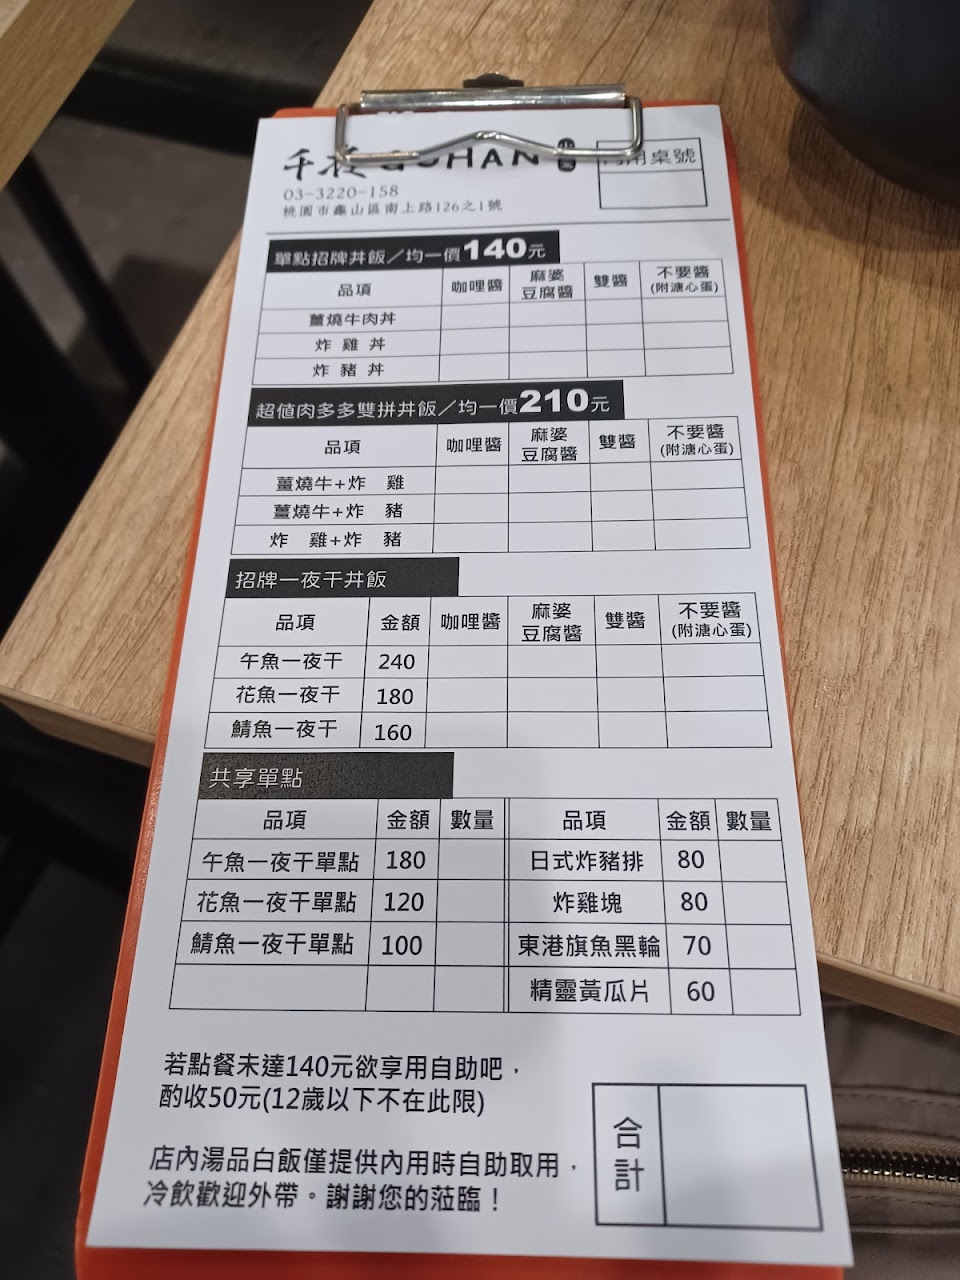 千夜GOHAN
內用桌號
03-3220-158
桃園市龜山區南上路126之1號
單點招牌丼飯／均一價140元
品項 咖哩醬 麻婆豆腐醬 雙醬 不要醬(附溏心蛋)
薑燒牛肉丼
炸 雞 丼
炸 豬 丼
超值肉多多雙拼丼飯／均一價210元
品項 咖哩醬 麻婆豆腐醬 雙醬 不要醬(附溏心蛋)
薑燒牛+炸 雞
薑燒牛+炸 豬
炸 雞+炸 豬
招牌一夜干丼飯
品項 金額 咖哩醬 麻婆豆腐醬 雙醬 不要醬(附溏心蛋)
午魚一夜干 240
花魚一夜干 180
鯖魚一夜干 160
共享單點
品項 金額 數量 品項 金額 數量
午魚一夜干單點 180 日式炸豬排 80
花魚一夜干單點 120 炸雞塊 80
鯖魚一夜干單點 100 東港旗魚黑輪 70
精靈黃瓜片 60
若點餐未達140元欲享用自助吧，
酌收50元(12歲以下不在此限)
店內湯品白飯僅提供內用時自助取用，
冷飲歡迎外帶。謝謝您的蒞臨！
合計